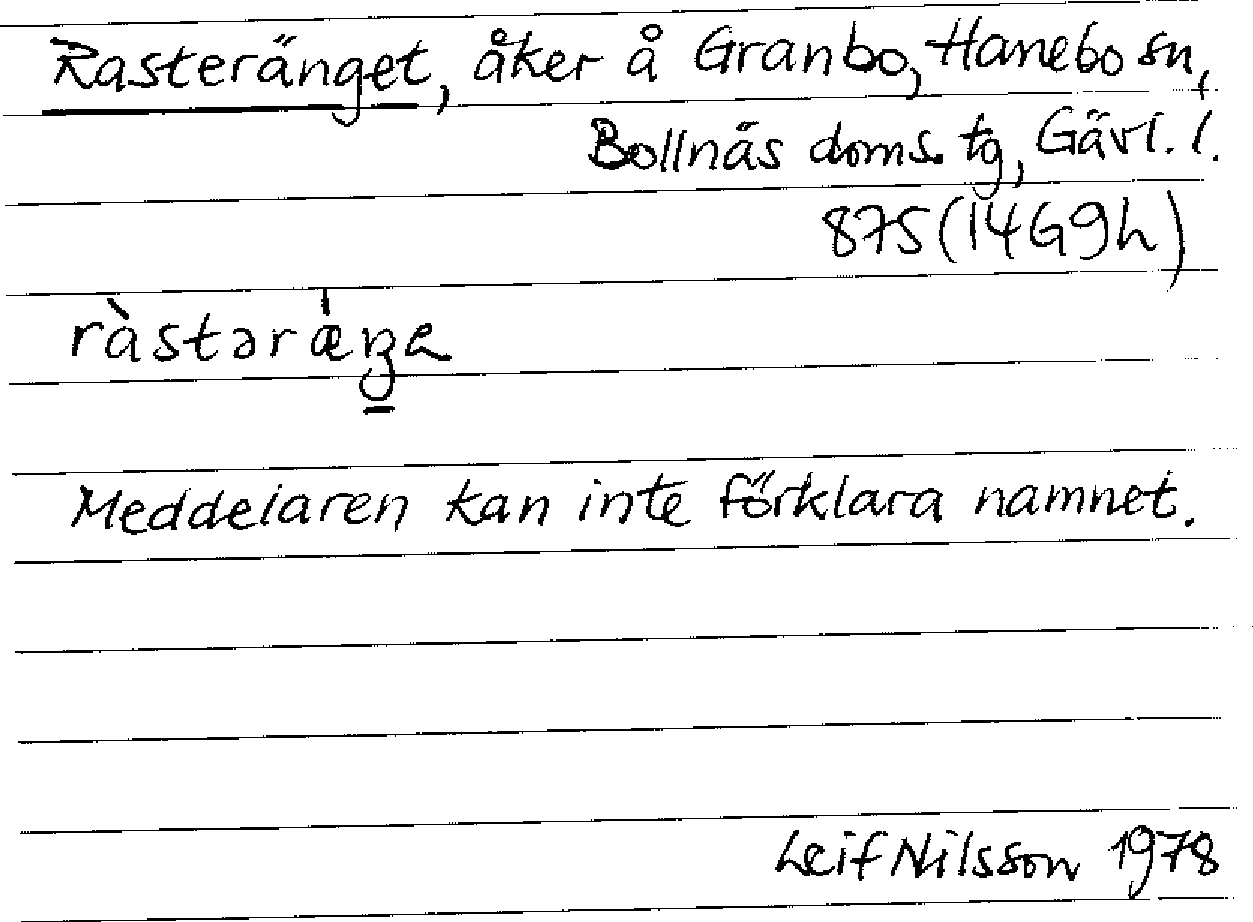 Rasteränget, åker å Granbo, Hanebo sn,
Bollnäs doms. tg, Gävl. l.
875 (14G9h)
ràstəráŋe
Meddelaren kan inte förklara namnet.
Leif Nilsson 1978